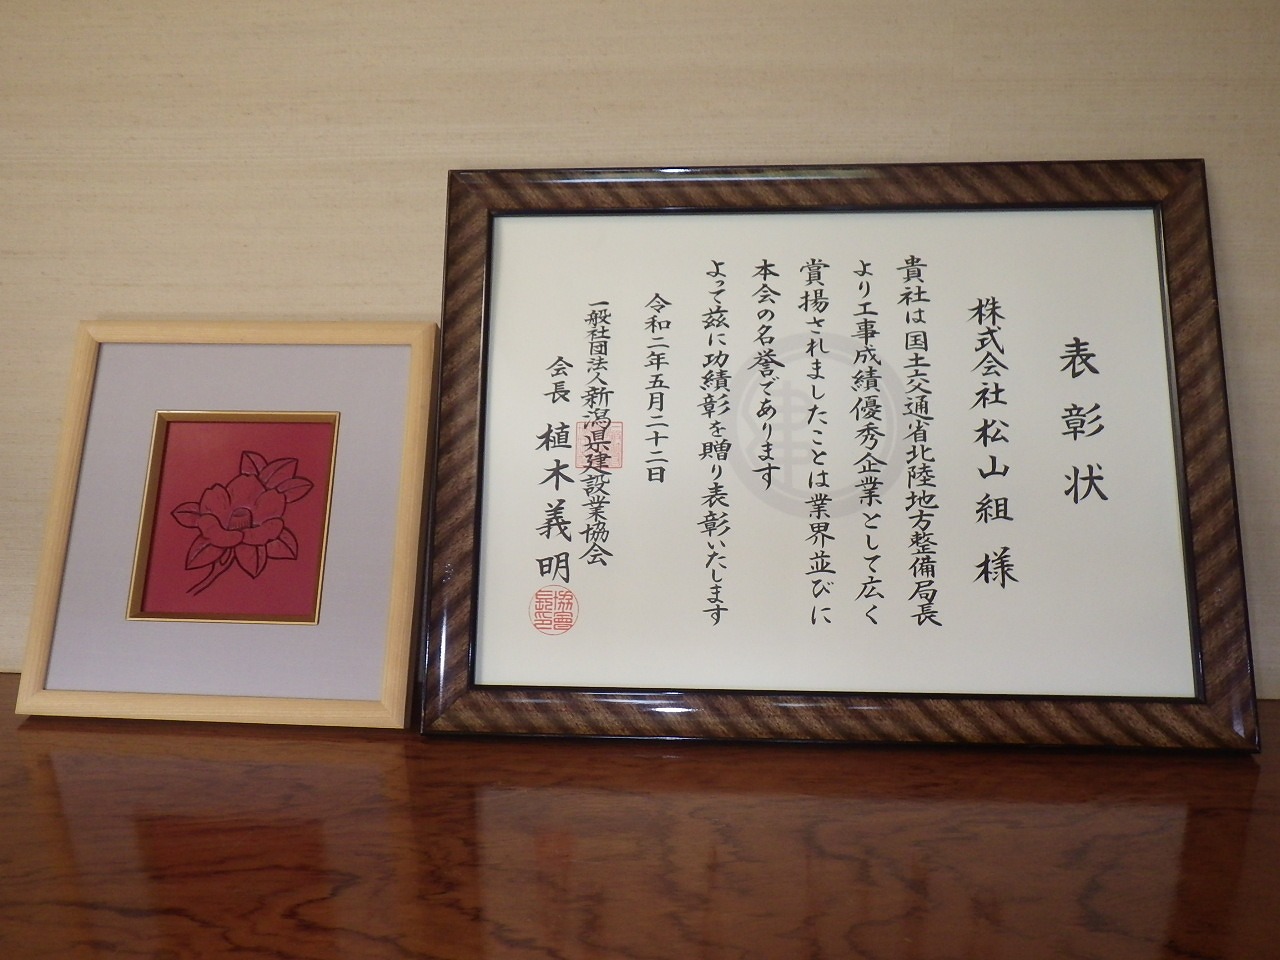 表彰状
株式会社松山組 様
貴社は国土交通省北陸地方整備局長
より工事成績優秀企業として広く
賞揚されましたことは業界並びに
本会の名誉であります
よって茲に功績彰を贈り表彰いたします
令和二年五月二十二日
一般社団法人新潟県建設業協会
会長 植木義明
協會長印